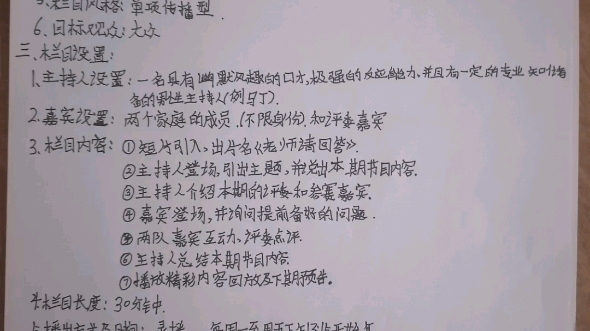 5.栏目风格:单项传播型
6.目标观众:大众
三、栏目设置:
1.主持人设置:一名具有幽默风趣的口才,极强的反应能力,并且有一定的专业知识储
备的职业主持人(例马丁).
2.嘉宾设置:两个家庭的成员.(不限身份)和评委嘉宾
3.栏目内容:①短片引入,出片名《老师请回答》.
②主持人登场,引出主题,并说出本期节目内容.
③主持人介绍本期的评委和参赛嘉宾.
④嘉宾登场,并询问提前备好的问题.
⑤两队嘉宾互动、评委点评.
⑥主持人总结本期节目内容
⑦播放精彩内容回放及下期预告.
4.栏目长度:30分钟.
5.播出方式及日期:录播